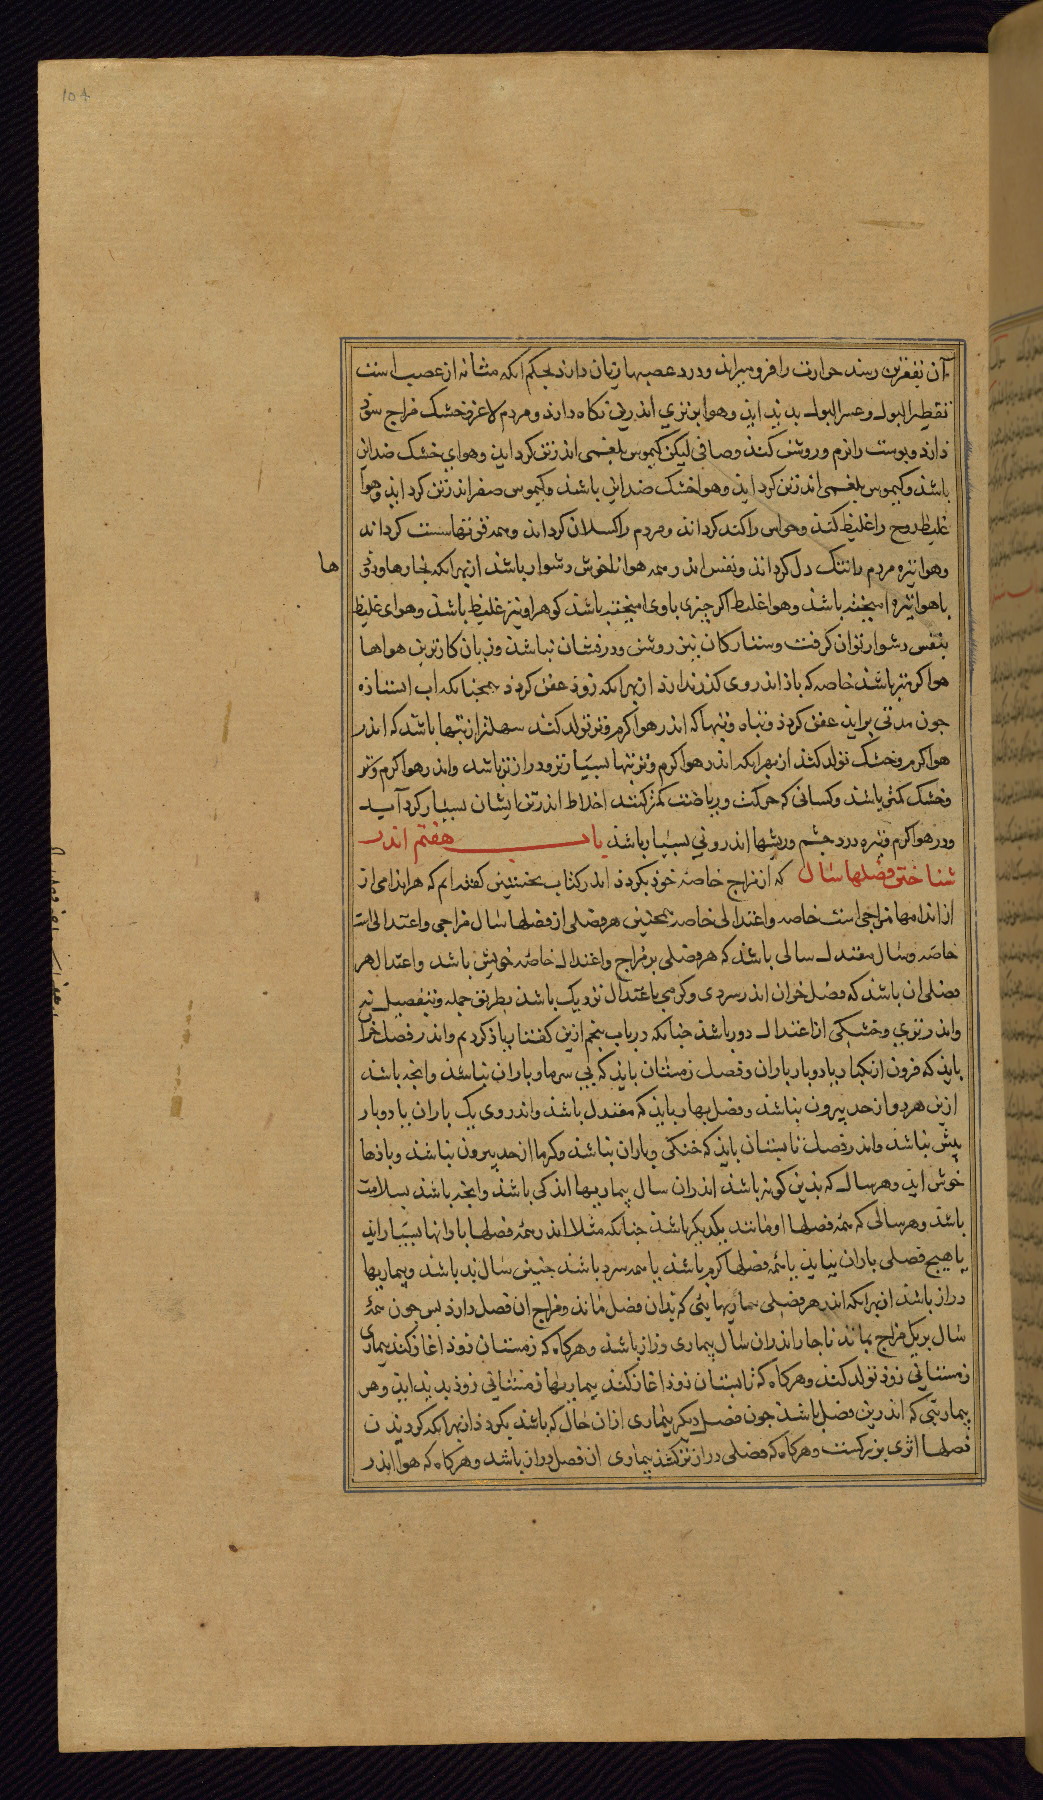 آن نفقرین رسند حرارت را فرومیراند ودرد عصبها زیان دارد بحکم انکه مثانه از عصب است
تقطیر البول وعسر البول بدید اید وهوا بزتری اندر تن نکاه دارد ومردم لاغر وخشک مزاج
دارد وپوست را نرم وروشن کند وصافی لیکن کیموس بلغمی اندر تن کرد اید وهوای خشک ضد این
باشد وکیموس بلغمی اندر تن کرد اید وهوا خشک ضد این باشد وکیموس صفرا اندر تن کرد اید وهوا
غلیظ روح را غلیظ کند وحواس را کند کرداند ومردم را کسلان کرداند وهمه قوتها سست کرداند
وهوا تیره مردم را تنک دل کرداند ونفس اندر همه هوا ناخوش دشوار باشد از بهر انکه بخارها ودو
ها
با هوا تیره امیخته باشد وهوا غلیظ اکر چیزی با وی امیخته باشد کوهر او نیز غلیظ باشد وهوای غلیظ
بنفس دشوار توان کرفت وستارکان نیز روشن ودرفشان نباشد وزیان کارترین هواها
هوا کرم تر باشد خاصه که باد اندر وی کذر ندارد از بهر انکه زود عفن کردد همجنانکه اب استاده
جون مدتی براید عفن کردد وتباه وتبها که اندر هوا کرم وتر تولد کند سهلتر از تبها باشد که اندر
هوا کرم وخشک تولد کند از بهر انکه اندر هوا کرم وتر تبها بسیارتر ودرازتر باشد واندر هوا کرم وتر
وخشک کمتر باشد وکسانی که حرکت وریاضت کمتر کنند اخلاط اندر تن ایشان بسیار کرد آید
ودر هوا کرم وتیره درد جشم وریشها اندرونی بسیار باشد باب هفتم اندر
شناختن فصلها سال که از مزاج خاصه خود بکردد اندر کتاب نخستین کفته ایم که هر اندامی از
از اندامها مزاجی است خاصه واعتدالی خاصه همجنین هر فصلی از فصلها سال مزاجی واعتدالی است
خاصه وسال معتدل سالی باشد که هر فصلی بر مزاج واعتدال خاصه خویش باشد واعتدال هر
فصلی ان باشد که فصل خزان اندر سردی وکرمی باعتدال نزدیک باشد بطریق جمله وبتفصیل نه
واندر تری وخشکی از اعتدال دور باشد جنانکه در باب پنجم ازین کفتار یاد کردیم واندر فصل خزا
باید که فزون از یکبار یا دو بار باران وفصل زمستان باید که بی سرما وباران نباشد وانچه باشد
ازین هر دو از حد بیرون نباشد وفصل بهار باید که معتدل باشد واندر وی یک باران یا دو بار
بیش نباشد واندر فصل تابستان باید که خنکی وباران نباشد وکرما از حد بیرون نباشد وبادها
خوش اید وهر سال که بدین کونه باشد اندران سال بیماریها اندکی باشد وانچه باشد بسلامت
باشد وهر سالی که همه فصلها او مانند یکدیکر باشد جنانکه مثلا اندر همه فصلها بارانها بسیار اید
یا هیچ فصلی باران نیاید یا همه فصلها کرم باشد یا همه سرد باشد جنین سال بد باشد وبیماریها
دراز باشد از بهر انکه اندر هر فصلی بیماریهائی که بدان فصل ماند ومزاج ان فصل دارد بس جون همه
سال بر یک مزاج بماند ناجار اندران سال بیماری دراز باشد وهرکاه که زمستان زود اغاز کند بیماری
زمستانی زود تولد کند وهرکاه که تابستان زود اغاز کند بیماریها زمستانی زود بدید اید وهر
بیماریی که اندرین فصل باشد جون فصل دیکر بیماری ازان حال که باشد بکردد از بهر انکه کردیدن
فصلها اثری بزرکست وهرکاه که فصلی درازتر کشد بیماری ان فصل دراز باشد وهرکاه که هوا اندر